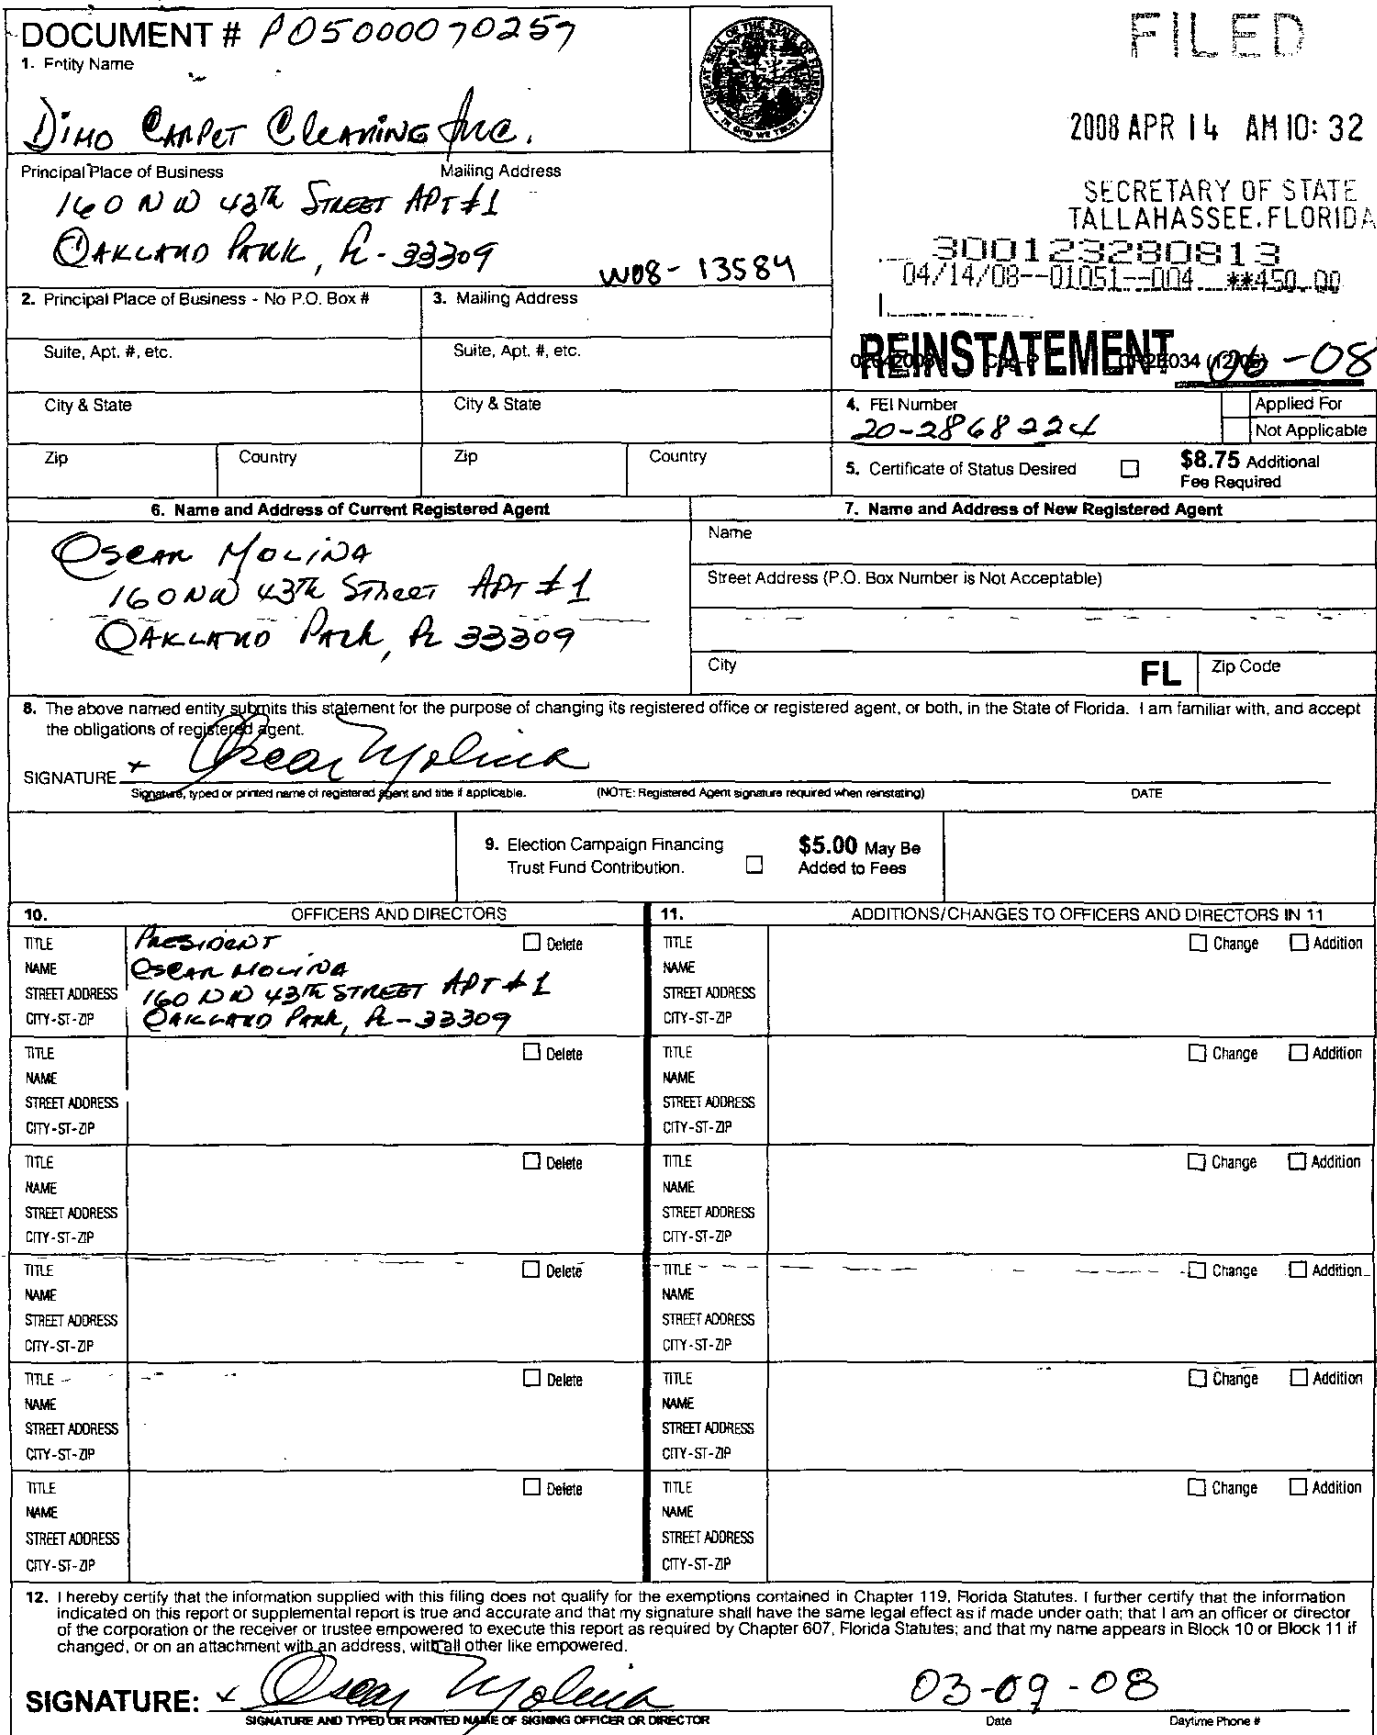 DOCUMENT # P05000070257
1. Entity Name
Dimo Carpet Cleaning Inc.
Principal Place of Business Mailing Address
160 NW 43th Street APT #1
Oakland Park, FL - 33309
W08-13584
FILED
2008 APR 14 AM 10:32
SECRETARY OF STATE
TALLAHASSEE, FLORIDA
300123280813
04/14/08--01051--004 **450.00
REINSTATEMENT 06-08
2. Principal Place of Business - No P.O. Box # 3. Mailing Address
Suite, Apt. #, etc. Suite, Apt. #, etc.
City & State City & State
Zip Country Zip Country
4. FEI Number Applied For
20-2868224 Not Applicable
5. Certificate of Status Desired $8.75 Additional
Fee Required
6. Name and Address of Current Registered Agent
Oscar Molina
160 NW 43th Street APT #1
Oakland Park, FL 33309
7. Name and Address of New Registered Agent
Name
Street Address (P.O. Box Number is Not Acceptable)
City FL Zip Code
8. The above named entity submits this statement for the purpose of changing its registered office or registered agent, or both, in the State of Florida. I am familiar with, and accept
the obligations of registered agent.
SIGNATURE x Oscar Molina
Signature, typed or printed name of registered agent and title if applicable. (NOTE: Registered Agent signature required when reinstating) DATE
9. Election Campaign Financing $5.00 May Be
Trust Fund Contribution. Added to Fees
10. OFFICERS AND DIRECTORS 11. ADDITIONS/CHANGES TO OFFICERS AND DIRECTORS IN 11
TITLE President Delete TITLE Change Addition
NAME Oscar Molina NAME
STREET ADDRESS 160 NW 43th STREET APT #1 STREET ADDRESS
CITY-ST-ZIP Oakland Park, FL - 33309 CITY-ST-ZIP
TITLE Delete TITLE Change Addition
NAME NAME
STREET ADDRESS STREET ADDRESS
CITY-ST-ZIP CITY-ST-ZIP
TITLE Delete TITLE Change Addition
NAME NAME
STREET ADDRESS STREET ADDRESS
CITY-ST-ZIP CITY-ST-ZIP
TITLE Delete TITLE Change Addition
NAME NAME
STREET ADDRESS STREET ADDRESS
CITY-ST-ZIP CITY-ST-ZIP
TITLE Delete TITLE Change Addition
NAME NAME
STREET ADDRESS STREET ADDRESS
CITY-ST-ZIP CITY-ST-ZIP
TITLE Delete TITLE Change Addition
NAME NAME
STREET ADDRESS STREET ADDRESS
CITY-ST-ZIP CITY-ST-ZIP
12. I hereby certify that the information supplied with this filing does not qualify for the exemptions contained in Chapter 119, Florida Statutes. I further certify that the information
indicated on this report or supplemental report is true and accurate and that my signature shall have the same legal effect as if made under oath; that I am an officer or director
of the corporation or the receiver or trustee empowered to execute this report as required by Chapter 607, Florida Statutes; and that my name appears in Block 10 or Block 11 if
changed, or on an attachment with an address, with all other like empowered.
SIGNATURE: x Oscar Molina 03-09-08
SIGNATURE AND TYPED OR PRINTED NAME OF SIGNING OFFICER OR DIRECTOR Date Daytime Phone #